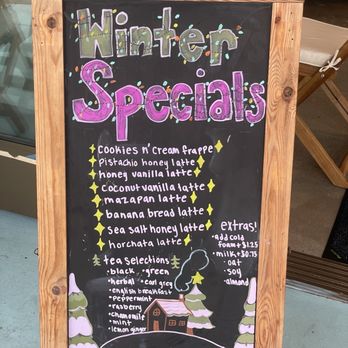 Winter
Specials
cookies n' cream frappe
Pistachio honey latte
honey vanilla latte
coconut vanilla latte
mazapan latte
banana bread latte
sea salt honey latte
horchata latte
extras!
• add cold
foam + $1.25
• milk + $0.75
• oat
• soy
• almond
tea selections
• black • green
• herbal • earl grey
• english breakfast
• peppermint
• raspberry
• chamomile
• mint
• lemon ginger